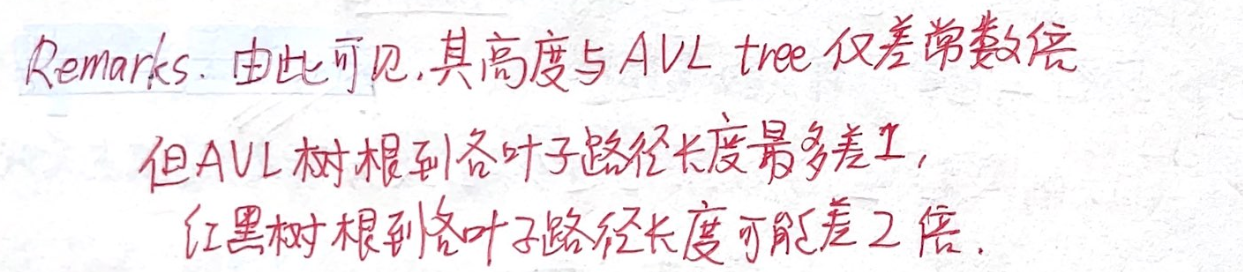 Remarks. 由此可见,其高度与AVL tree 仅差常数倍
但AVL树根到各叶子路径长度最多差1,
红黑树根到各叶子路径长度可能差2倍.